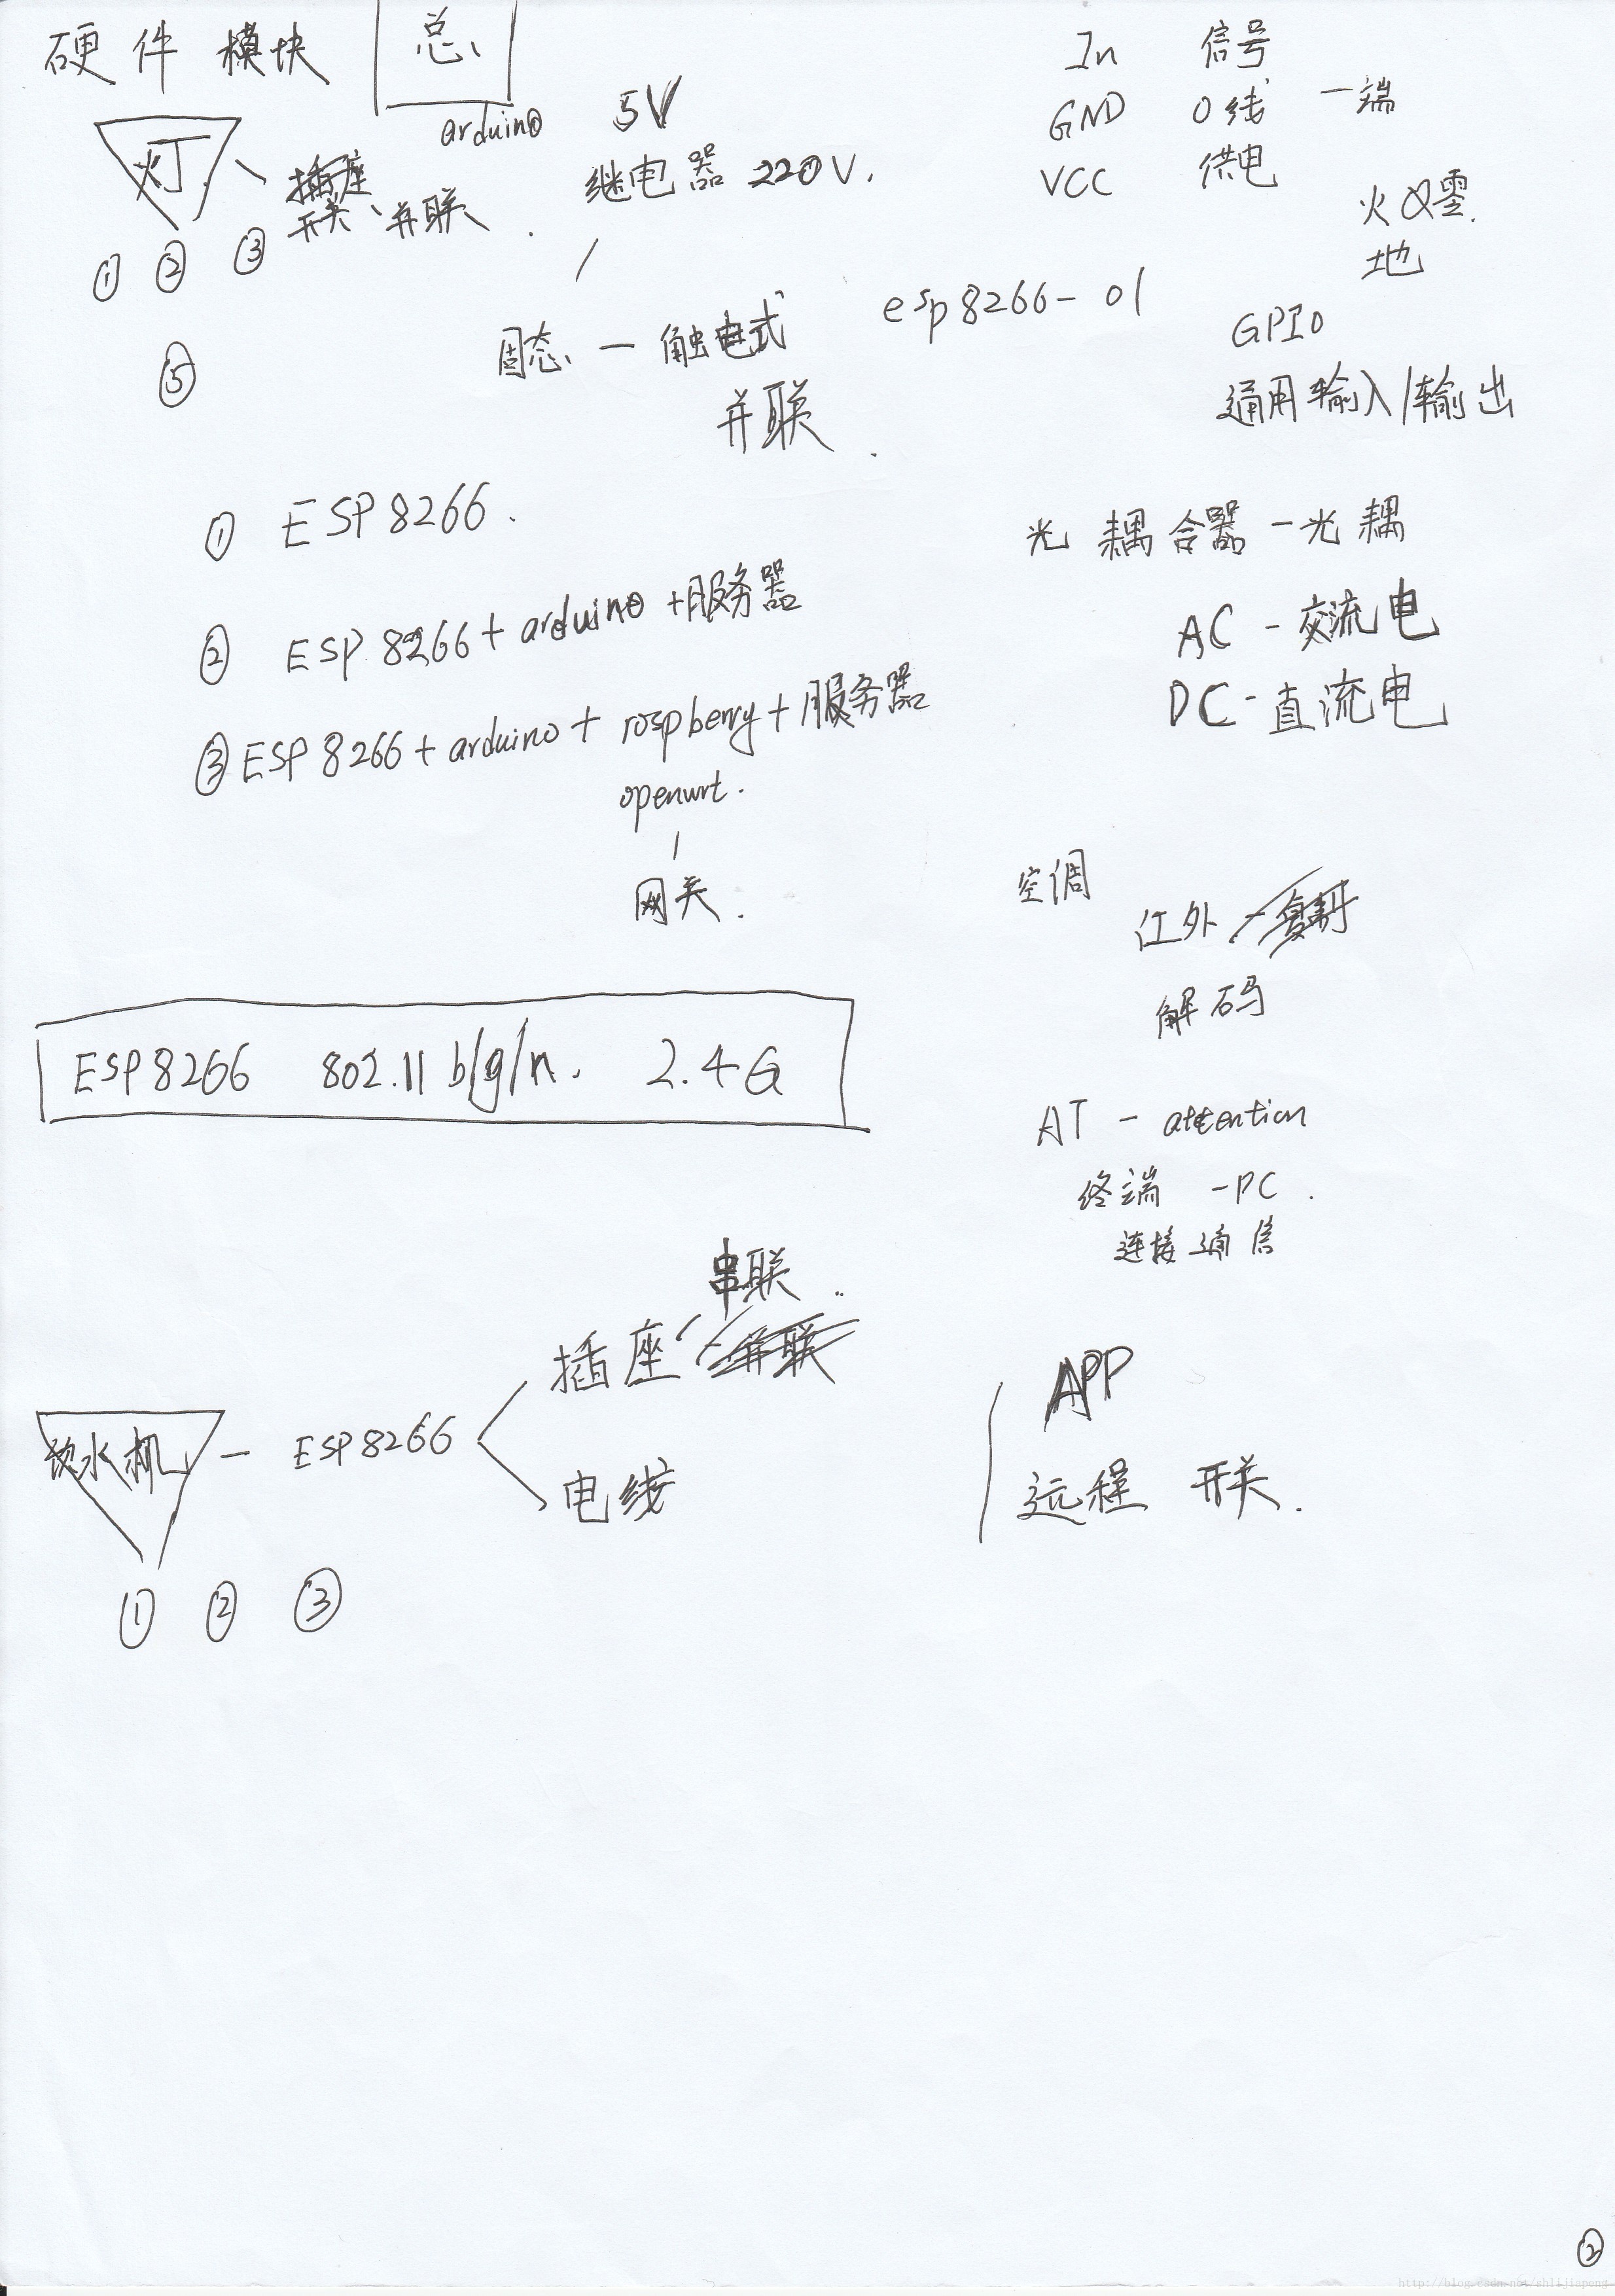 硬件模块 总
arduino
灯
插座
开关 并联
① ② ③
⑤
5V
继电器 220V.
固态 — 触电式
并联
esp8266-01
In 信号
GND 0线 一端
VCC 供电
火 零
地
GPIO
通用输入/输出
① ESP8266.
② ESP8266+arduino+服务器
③ ESP8266+arduino+rospberry+服务器
openwrt.
网关.
光耦合器-光耦
AC-交流电
DC-直流电
空调
红外-复制
解码
ESP8266 802.11 b/g/n. 2.4G
AT - attention
终端 -PC.
连接通信
串联
插座 -并联
饮水机 — ESP8266
电线
① ② ③
APP
远程 开关.
②
http://blog.csdn.net/shlijiapeng